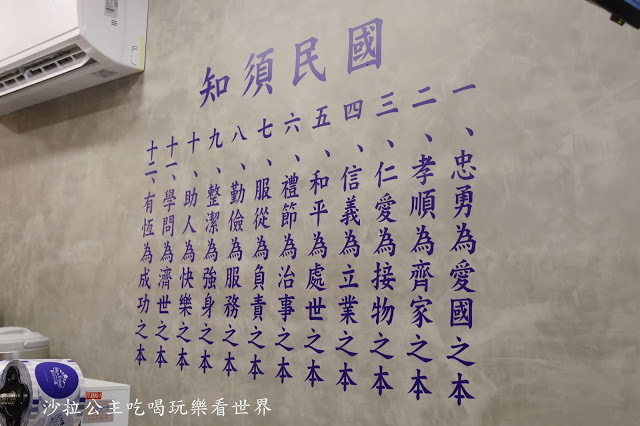 國民須知
一、忠勇為愛國之本
二、孝順為齊家之本
三、仁愛為接物之本
四、信義為立業之本
五、和平為處世之本
六、禮節為治事之本
七、服從為負責之本
八、勤儉為服務之本
九、整潔為強身之本
十、助人為快樂之本
十一、學問為濟世之本
十二、有恆為成功之本
沙拉公主吃喝玩樂看世界